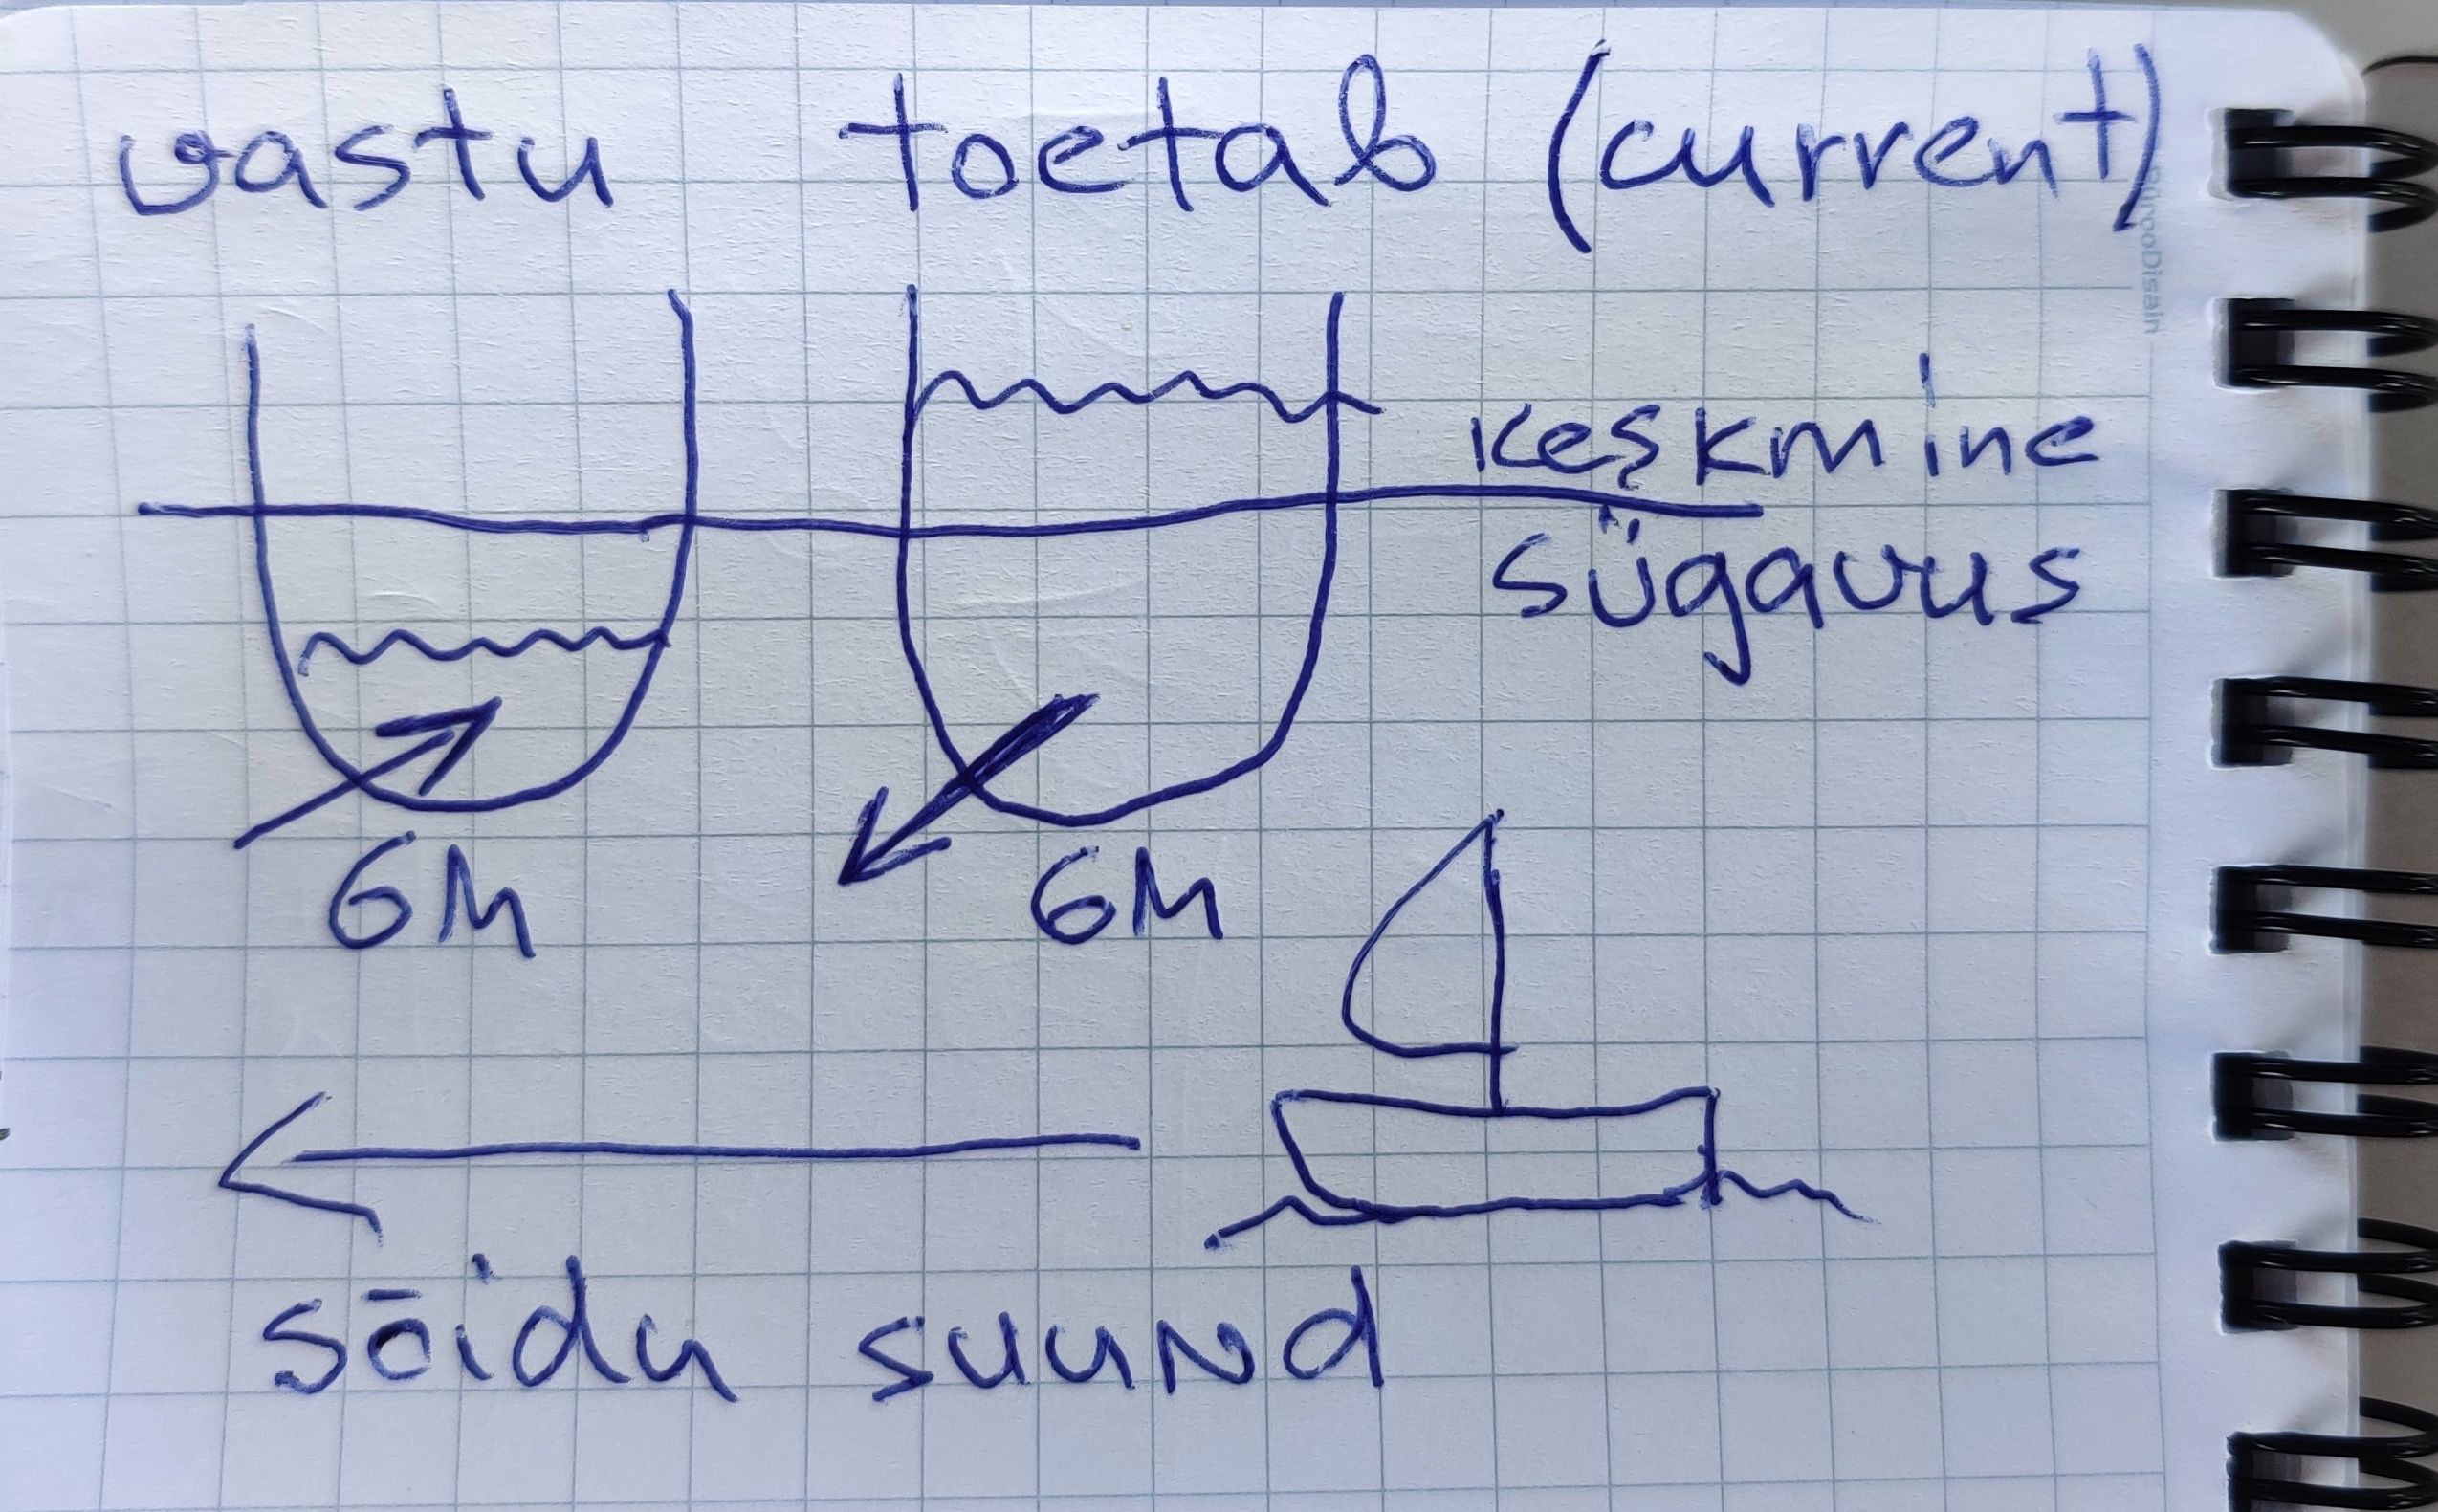 vastu toetab (current)
keskmine
sügavus
6M 6M
sõidu suund